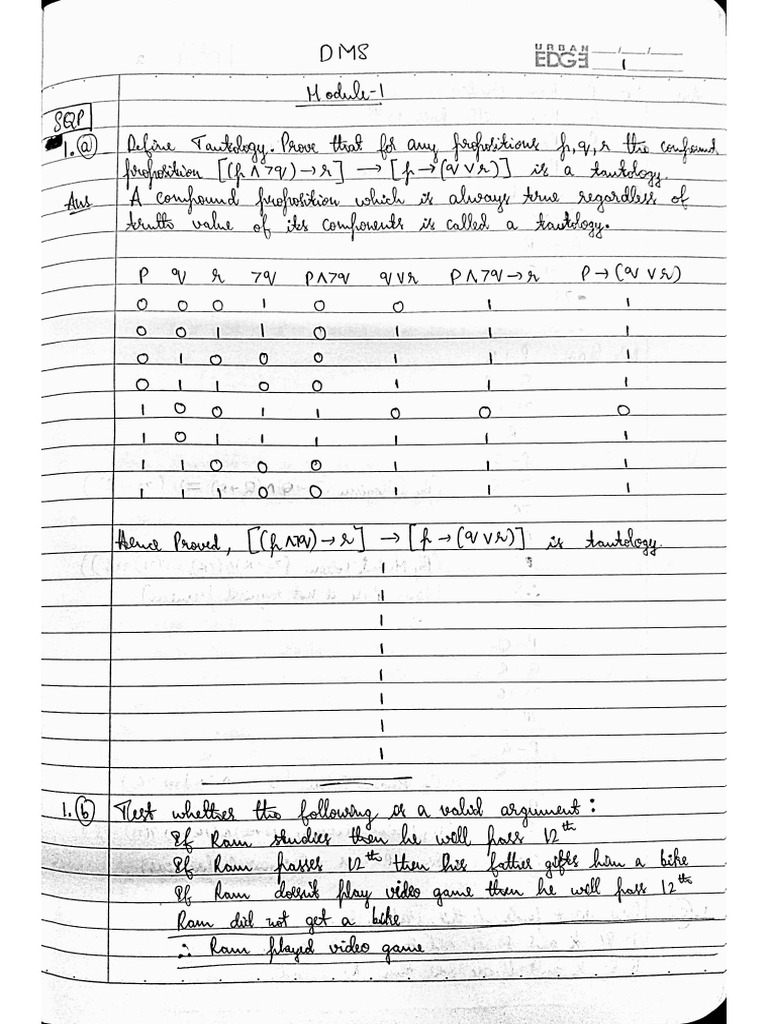 DMS
URBAN
EDGE
Module-1
SQP
1. a) Define Tautology. Prove that for any propositions p, q, r the compound
proposition [(p ∧ ¬q) → r] → [p → (q ∨ r)] is a tautology.
Ans A compound proposition which is always true regardless of
truth value of its components is called a tautology.
P q r ¬q P∧¬q q∨r P∧¬q→r P→(q∨r)
0 0 0 1 0 0 1 1
0 0 1 1 0 1 1 1
0 1 0 0 0 1 1 1
0 1 1 0 0 1 1 1
1 0 0 1 1 0 0 0
1 0 1 1 1 1 1 1
1 1 0 0 0 1 1 1
1 1 1 0 0 1 1 1
Hence Proved, [(p∧¬q)→r] → [p→(q∨r)] is tautology.
1
1
1
1
1
1
1
1
1. b) Test whether the following is a valid argument:
If Ram studies then he will pass 12th
If Ram passes 12th then his father gifts him a bike
If Ram doesn't play video game then he will pass 12th
Ram did not get a bike
∴ Ram played video game